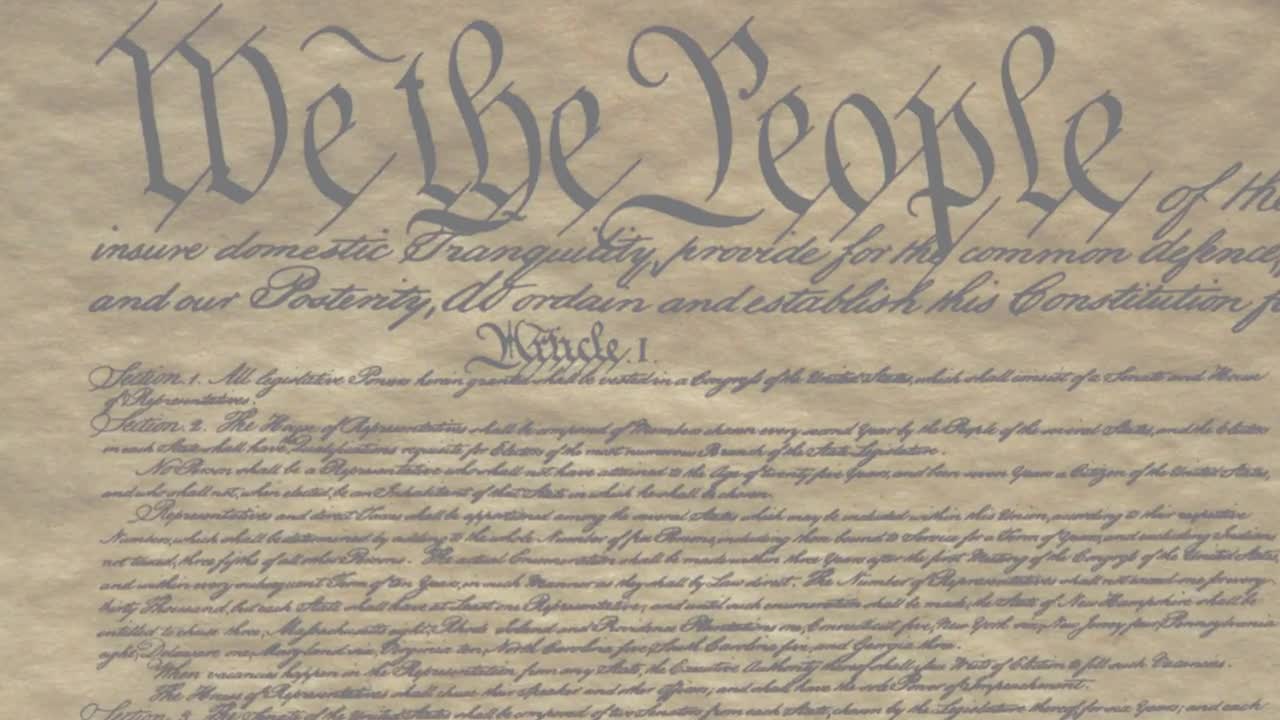 We the People of the
insure domestic Tranquility, provide for the common defence,
and our Posterity, do ordain and establish this Constitution f
Article. I.
Section. 1. All legislative Powers herein granted shall be vested in a Congress of the United States, which shall consist of a Senate and House
of Representatives.
Section. 2. The House of Representatives shall be composed of Members chosen every second Year by the People of the several States, and the Electors
in each State shall have the Qualifications requisite for Electors of the most numerous Branch of the State Legislature.
No Person shall be a Representative who shall not have attained to the Age of twenty five Years, and been seven Years a Citizen of the United States,
and who shall not, when elected, be an Inhabitant of that State in which he shall be chosen.
Representatives and direct Taxes shall be apportioned among the several States which may be included within this Union, according to their respective
Numbers, which shall be determined by adding to the whole Number of free Persons, including those bound to Service for a Term of Years, and excluding Indians
not taxed, three fifths of all other Persons. The actual Enumeration shall be made within three Years after the first Meeting of the Congress of the United States,
and within every subsequent Term of ten Years, in such Manner as they shall by Law direct. The Number of Representatives shall not exceed one for every
thirty Thousand, but each State shall have at Least one Representative; and until such enumeration shall be made, the State of New Hampshire shall be
entitled to chuse three, Massachusetts eight, Rhode Island and Providence Plantations one, Connecticut five, New York six, New Jersey four, Pennsylvania
eight, Delaware one, Maryland six, Virginia ten, North Carolina five, South Carolina five, and Georgia three.
When vacancies happen in the Representation from any State, the Executive Authority thereof shall issue Writs of Election to fill such Vacancies.
The House of Representatives shall chuse their Speaker and other Officers; and shall have the sole Power of Impeachment.
Section. 3. The Senate of the United States shall be composed of two Senators from each State, chosen by the Legislature thereof, for six Years; and each